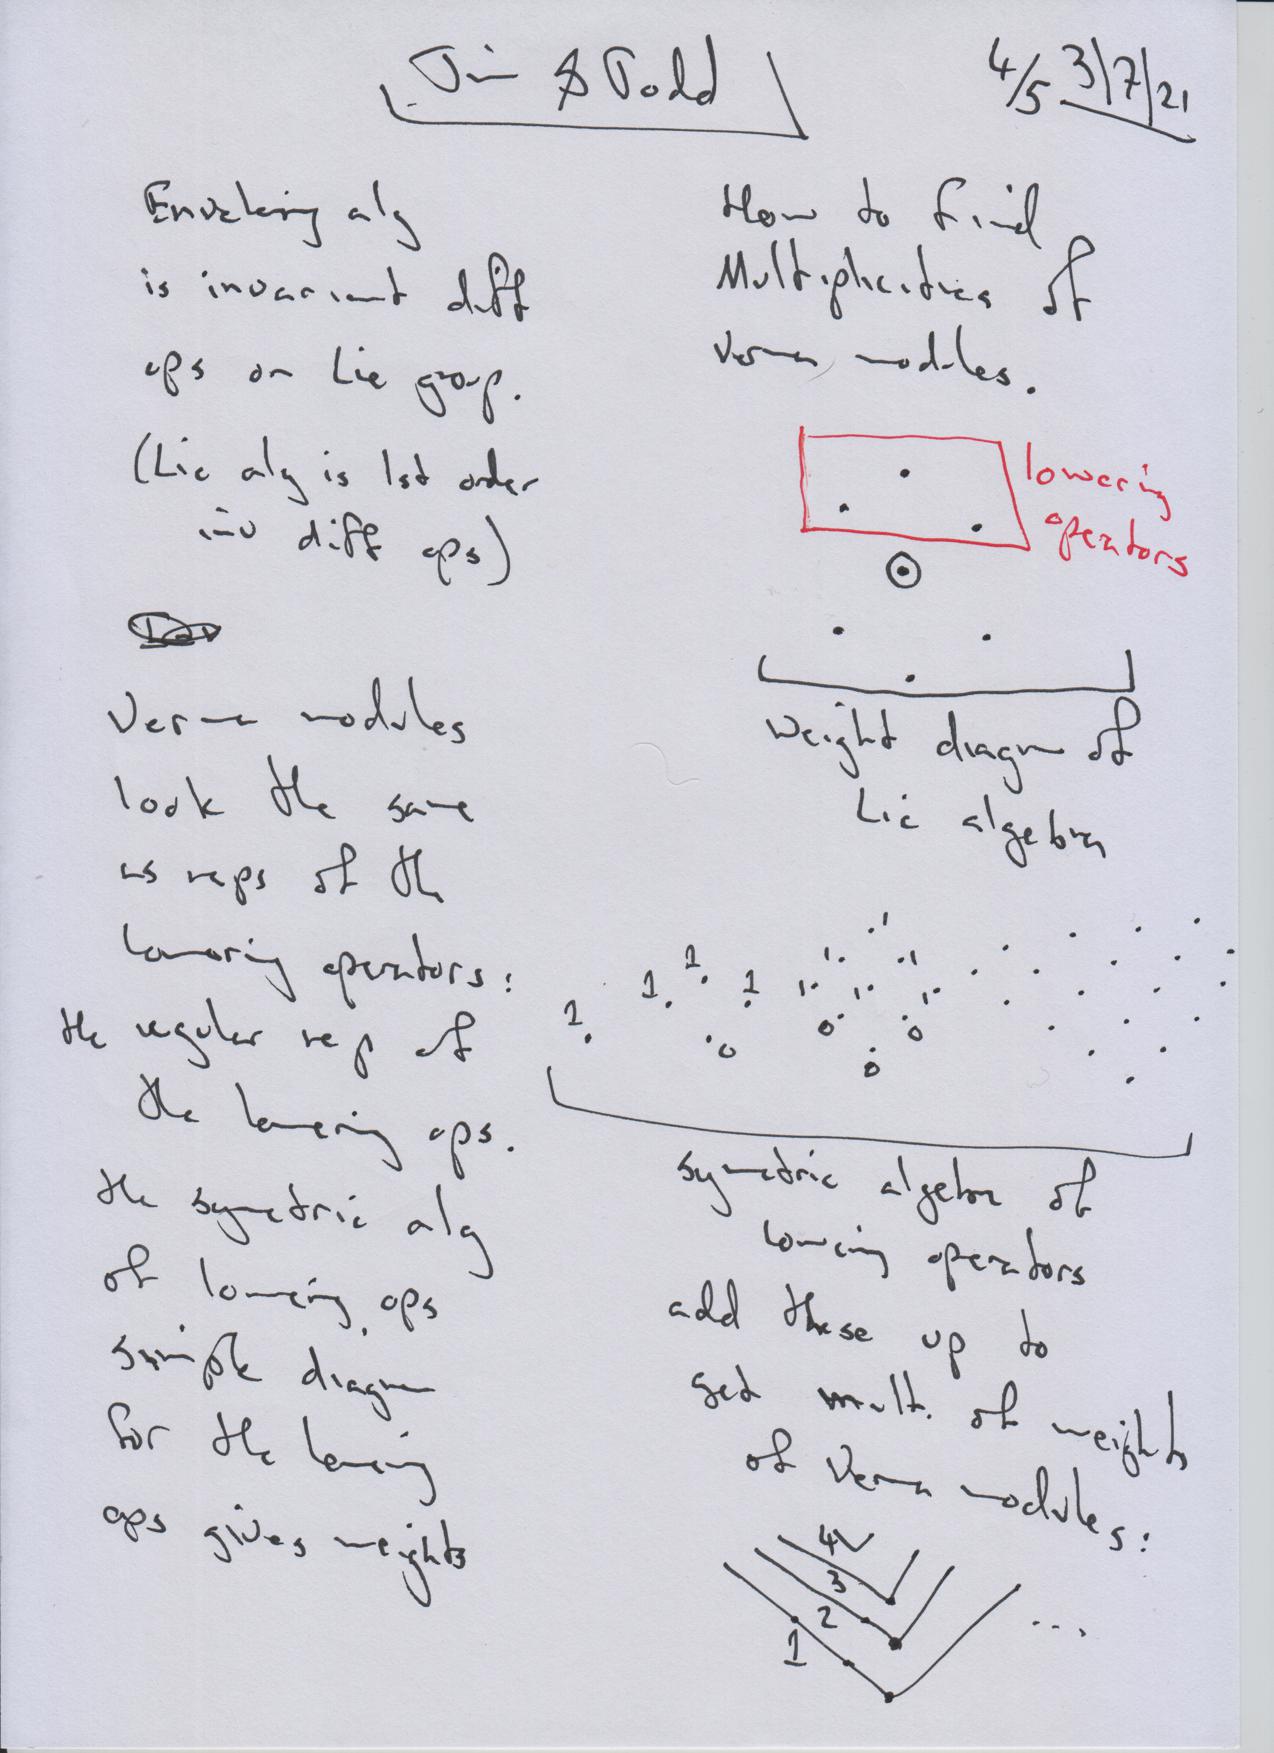 Jim & Todd
4/5 3/7/21
Enveloping alg
is invariant diff
ops on Lie group.
(Lie alg is 1st order
inv diff ops)
Verma modules
look the same
as reps of the
lowering operators:
the regular rep of
the lowering ops.
the symetric alg
of lowering ops
simple diagram
for the lowering
ops gives weights
How to find
Multiplicities of
Verma modules.
lowering
operators
weight diagram of
Lie algebra
1 1 1 1 1 1 1 1 1 1
0 0 0 0
symetric algebra of
lowering operators
add these up to
get mult. of weights
of Verma modules:
4
3
2
1
...